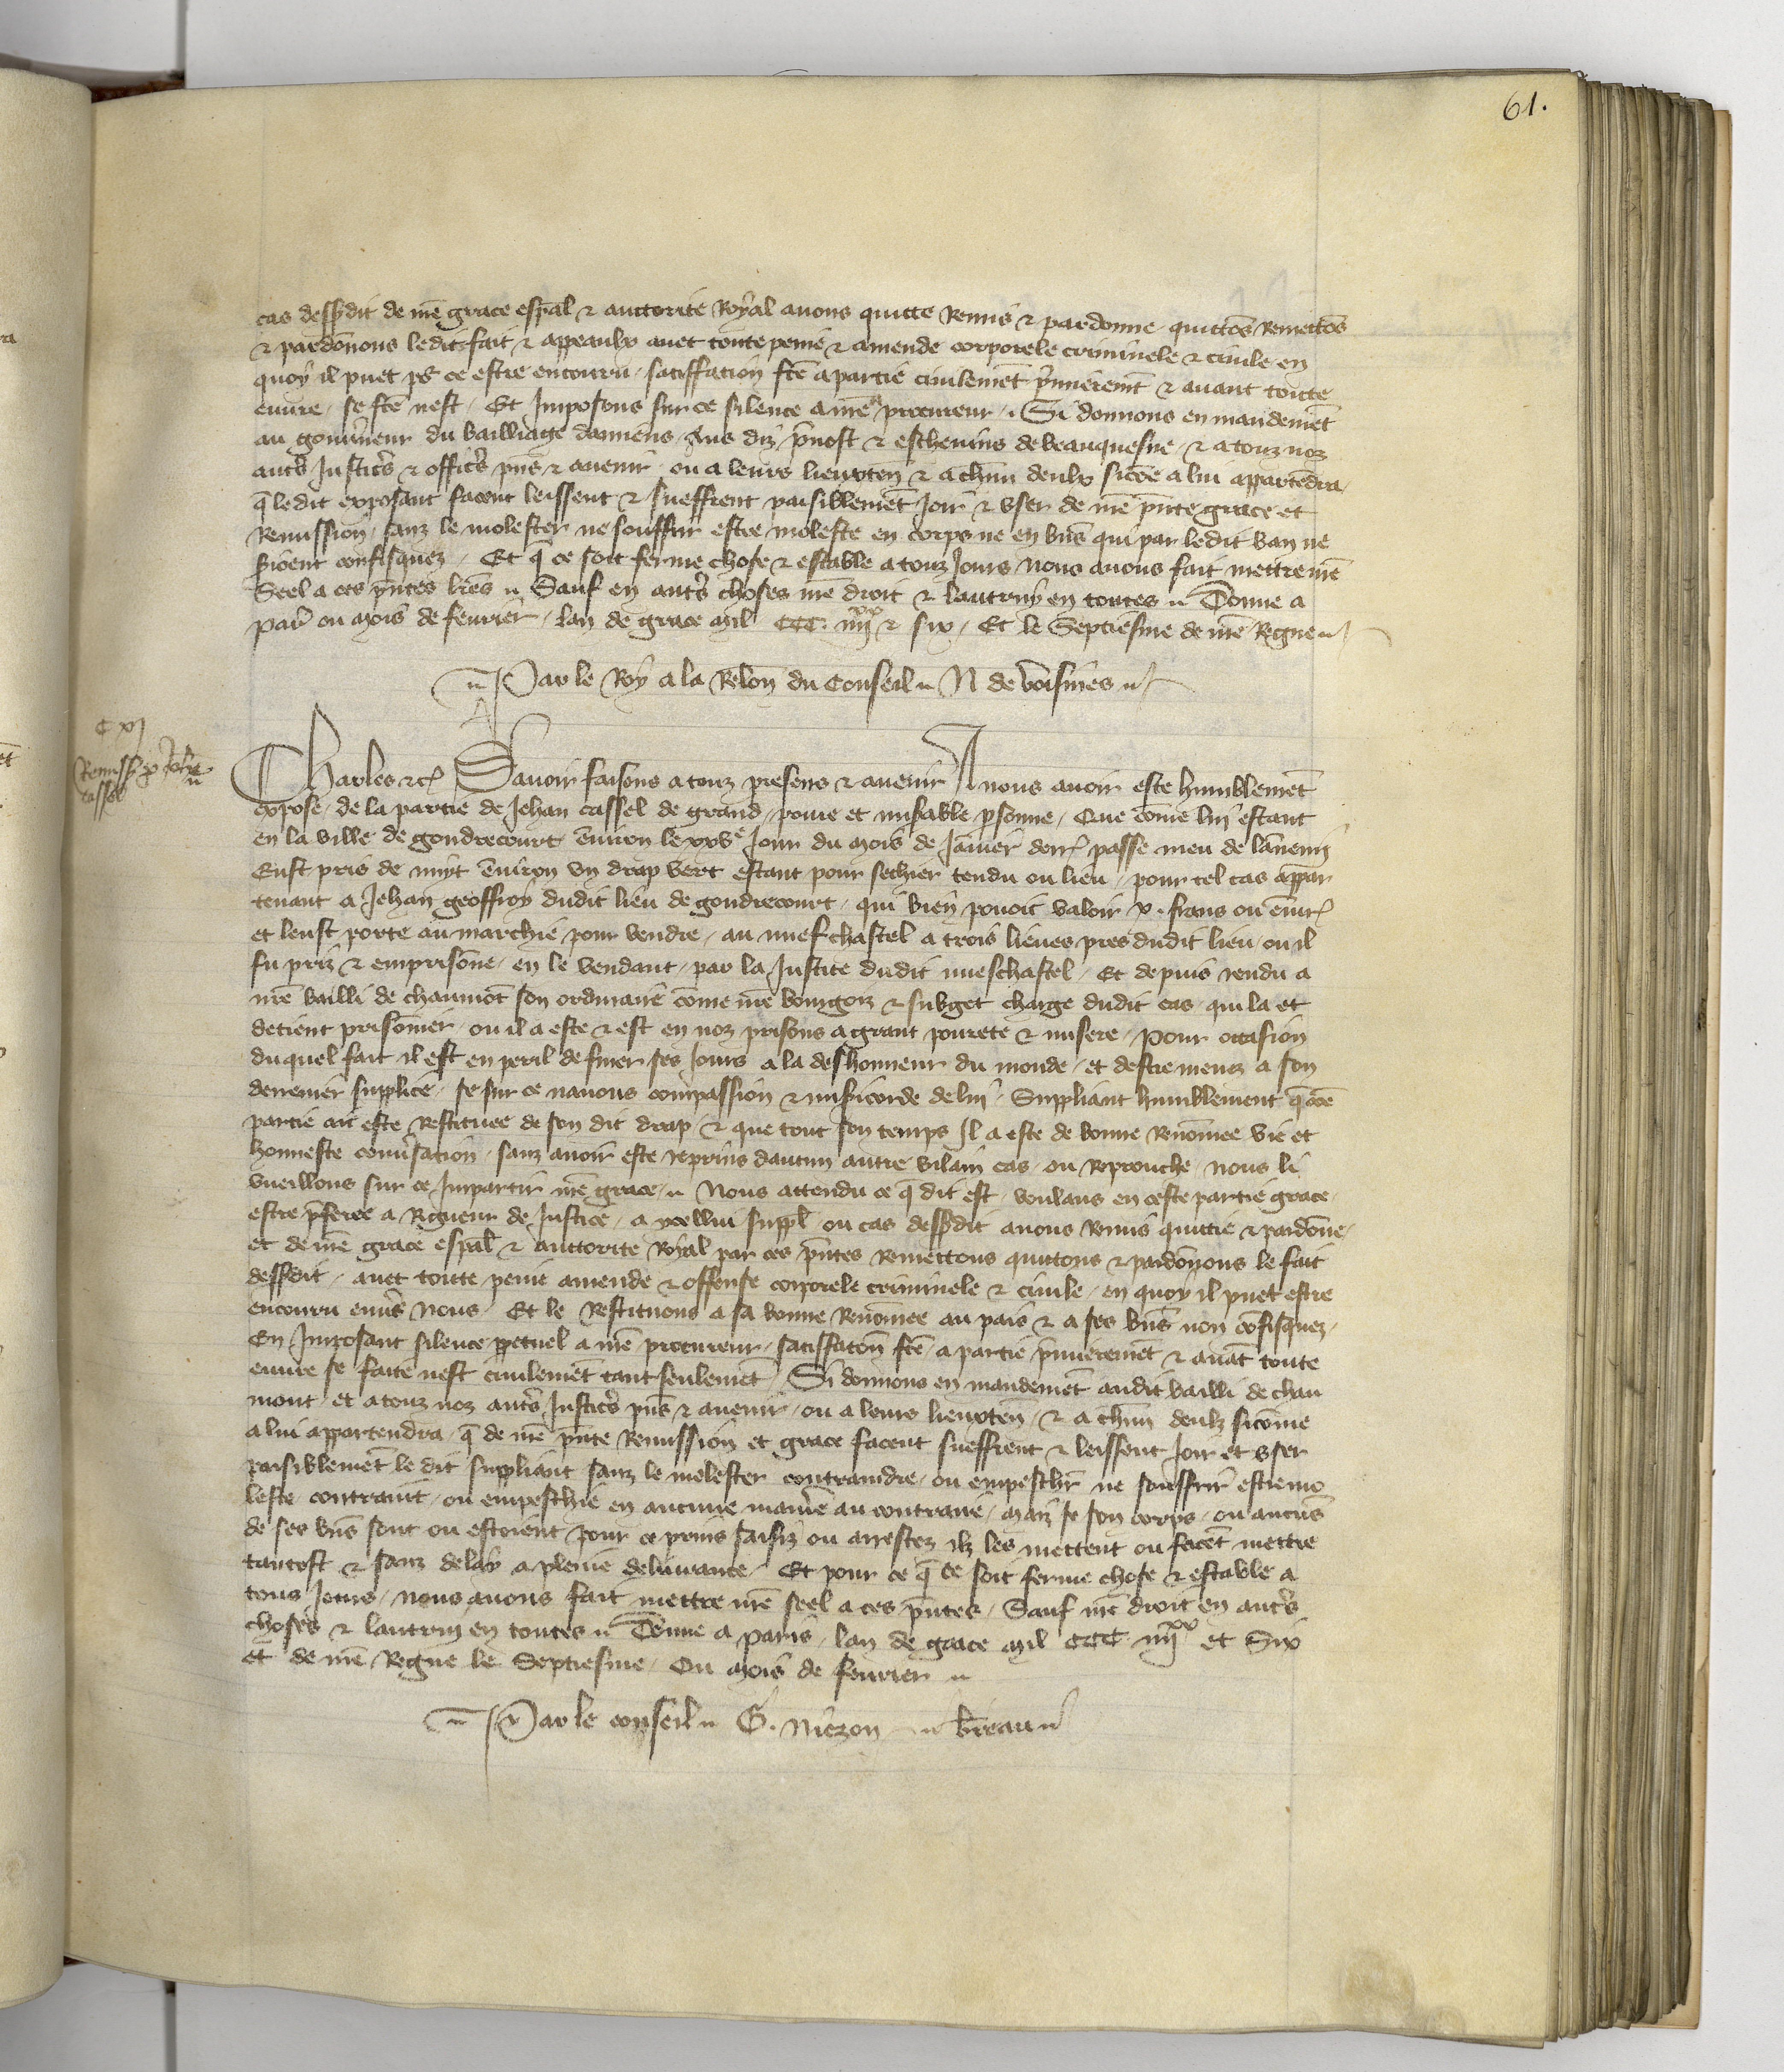 61.
cas dessusdit de nre grace espal & auctorite Royal avons quitte Remis & pardonne quittons Remettons
& pardonnons ledit fait & appeaulx avec toute peine & amende corporele criminele & civile en
quoy il puet pour ce estre encouru satiffacion fce a partie civilemet primierement & avant toute
euvre se fce nest Et Imposons sur ce silence a nre procureur Si donnons en mandemet
au gouverneur du bailliage damiens Aus diz prevost & eschevins de beauquesne & a touz noz
autrs Justicrs & officrs pns & avenir ou a leurs lieuxten & a chun deulx sicoe a lui appartedra
q ledit exposant facent leissent & sueffrent paisiblemet Joir & user de nre pnte grace et
Remission sanz le molester ne souffrir estre moleste en corps ne en bns qui par ledit ban ne
soient confisquez Et q ce soit ferme chose & estable a touz Jours nous avons fait mettre nre
Seel a ces pntes lres Sauf en autrs choses nre droit & lautruy en toutes Donne a
Paris ou mois de fevrier lan de grace mil CCC iiiixx & six Et le Septiesme de nre Regne
Par le Roy a la Relon du Conseil N de voisines
C xj
Remiss p Jehan
cassel
Charles &c Savoir faisons a touz presens & avenir A nous avoir este humblemet
expose de la partie de Jehan cassel de grand povre et miserable psonne Que come lui estant
en la ville de gondrecourt environ le xxve Jour du mois de Janvier derr passe meu de lanemi
Eust pris de nuyt environ un drap vert estant pour sechier tendu ou lieu pour tel cas appar
tenant a Jehan geoffroy dudit lieu de gondrecourt qui bien povoit valoir v. frans ou envir
et leust porte au marchie pour vendre au nuefchastel a trois lieues pres dudit lieu ou il
fu priz & emprisone en le vendant par la Justice dudit nuefchastel Et depuis rendu a
nre bailli de chaumot son ordinaire come nre bourgoiz & subget charge dudit cas qui la et
detient prisonier ou il a este & est en noz prisons a grant povrete & misere Pour occasion
duquel fait il est en peril de finer ses Jours a la deshonneur du monde et destre menez a son
derrenier supplice se sur ce navons compassion & misericorde de lui Suppliant humblement q coe
partie ait este Restituee de son dit drap & que tout son temps Il a este de bonne Renomee vie et
honneste conversacion sanz avoir este reprins daucun autre vilain cas ou Reprouche nous li
vueillons sur ce Impartir nre grace Nous attendu ce q dit est voulans en ceste partie grace
estre pferee a Rigueur de Justice a ycellui suppl ou cas dessusdit avons Remis quittie & pardone
et de nre grace espal & auctorite Royal par ces pntes remettons quittons & pardonons le fait
dessusdit avec toute peine amende & offense corporele criminele & civile en quoy il puet estre
encouru envers nous Et le Restituons a sa bonne Renomee au pais & a ses bns non cofisquez
En Imposant silence perpetuel a nre procureur satisfacion fce a partie primieremet & avat toute
euvre se faite nest civilemet tant seulemet Si donnons en mandemet audit bailli de chau
mont et a touz noz autrs Justicrs pns & avenir ou a leurs lieuxten & a chun deulz sicome
a lui appartendra q de nre pnte Remission et grace facent sueffrent & leissent Joir et user
paisiblemet le dit suppliant sanz le molester contraindre ou empeschr ne souffrir estre mo
leste contraint ou empeschie en aucune maniere au contraire maiz se son corps ou aucuns
de ses bns sont ou estoient pour ce prins saisiz ou arrestez ilz les mettent ou facet mettre
tantost & sanz delay a pleine delivrance Et pour ce q ce soit ferme chose & estable a
tous Jours nous avons fait mettre nre seel a ces pntes Sauf nre droit en autrs
choses & lautruy en toutes Donne a Paris lan de grace mil CCC iiiixx et Six
et de nre Regne le Septiesme Ou mois de fevrier
Par le conseil G. Nierzon breau